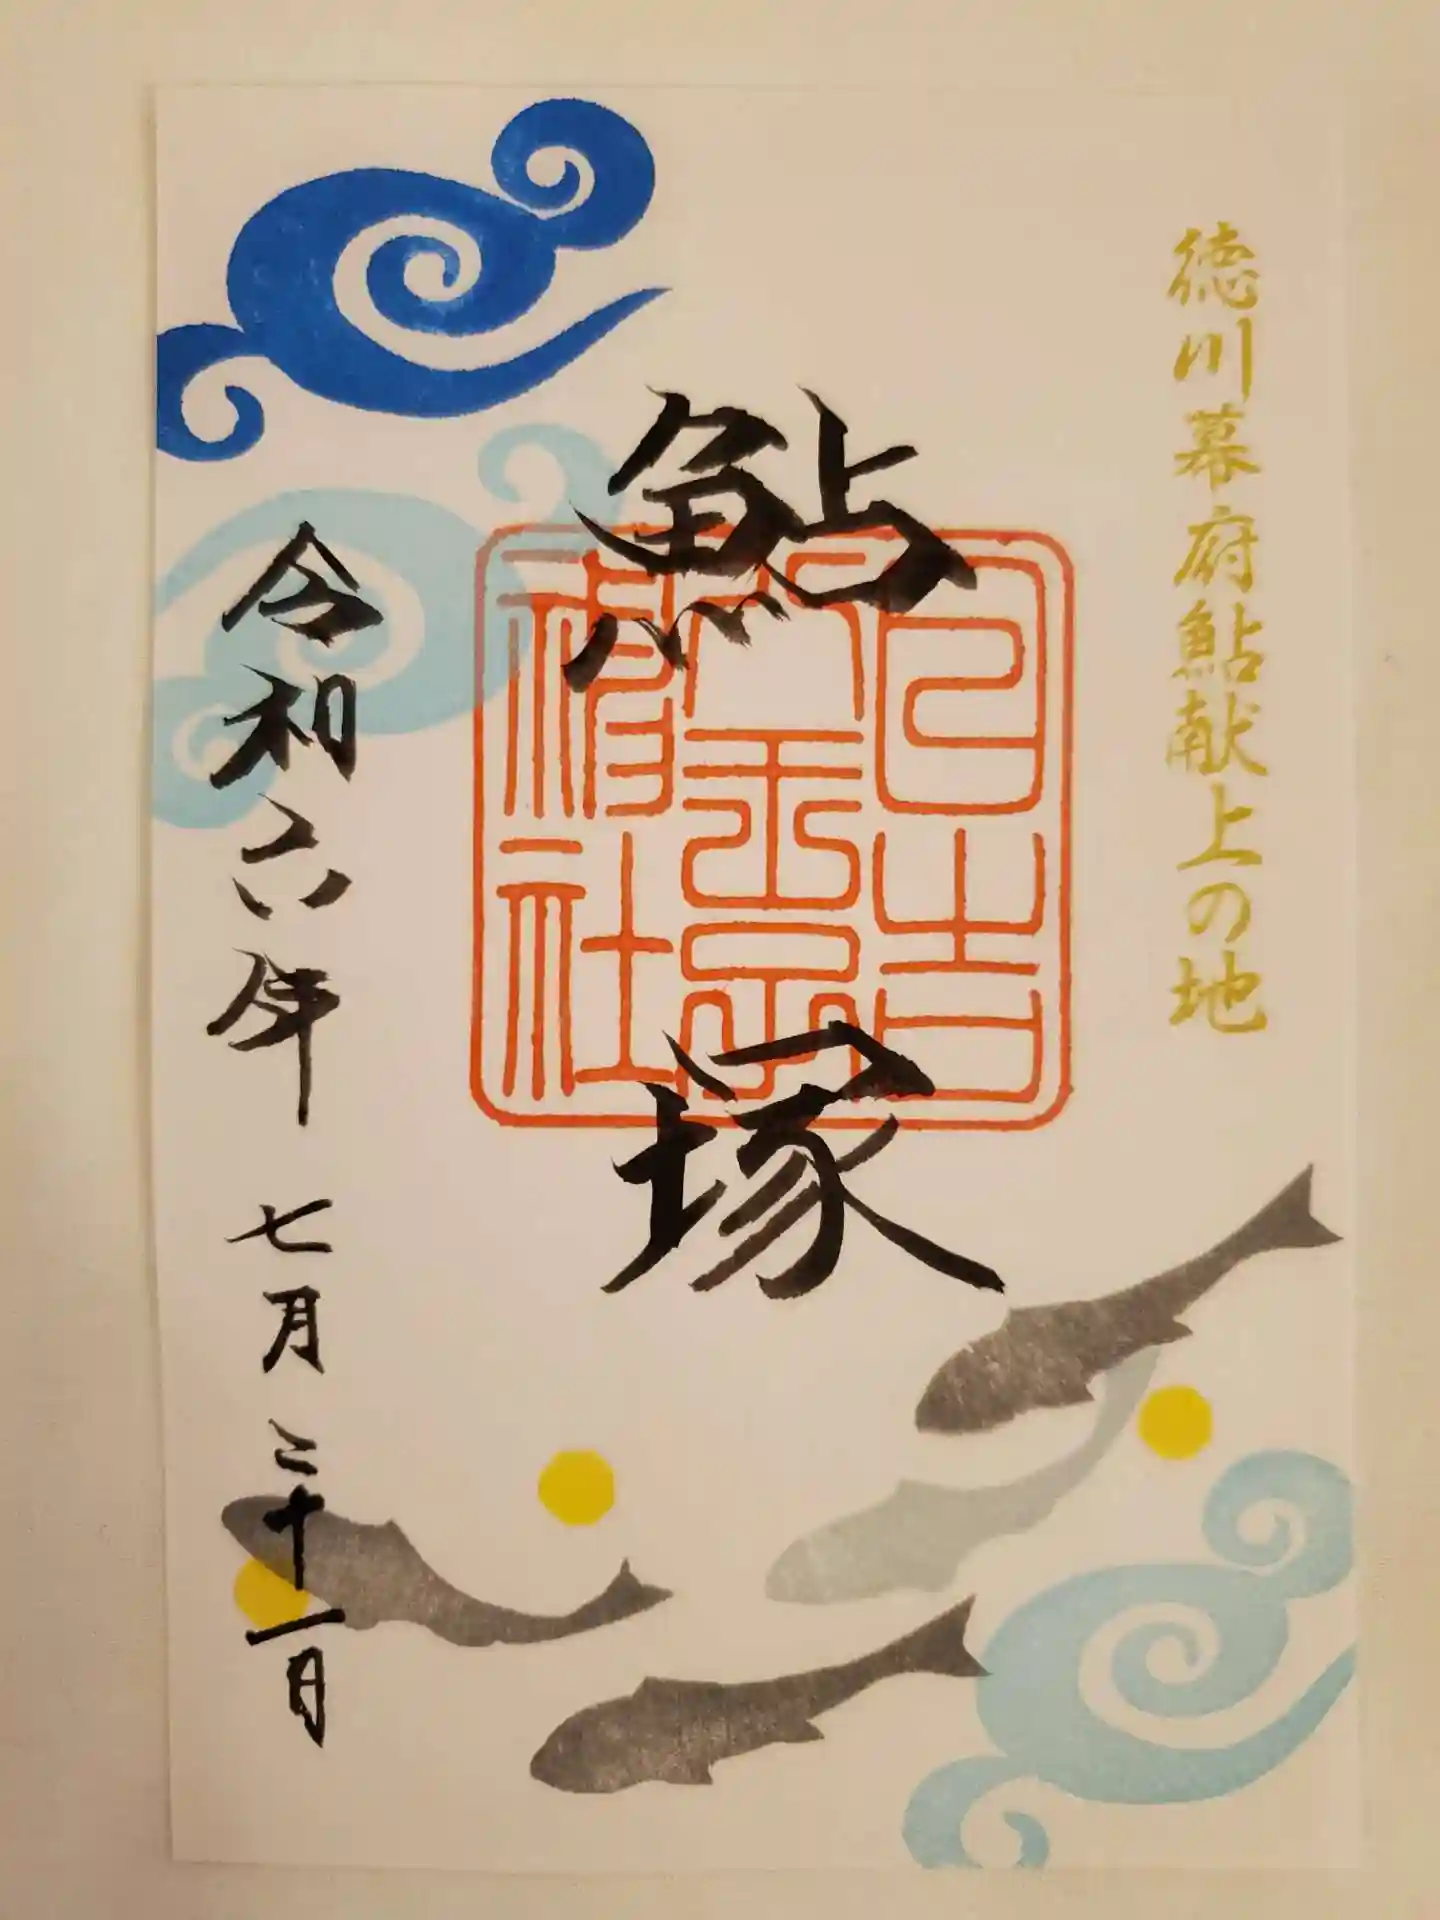 徳川幕府鮎献上の地
鮎塚
日吉
神社
令和六年 七月二十一日